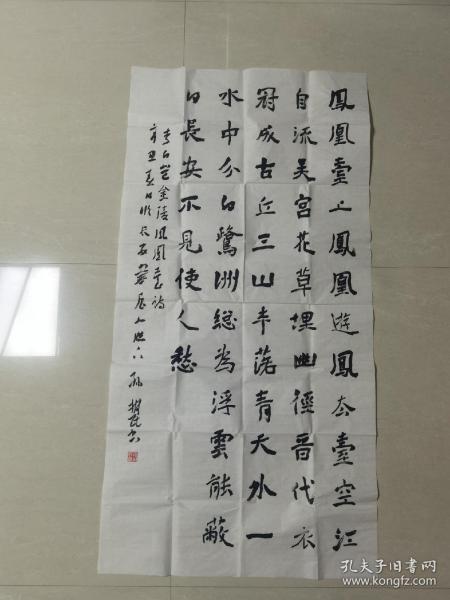 鳳凰臺上鳳凰遊鳳去臺空江
自流吳宮花草埋幽徑晉代衣
冠成古丘三山半落青天外一
水中分白鷺洲總為浮雲能蔽
日長安不見使人愁
李白登金陵鳳凰臺詩
辛丑夏日於
孔夫子旧书网
www.kongfz.com